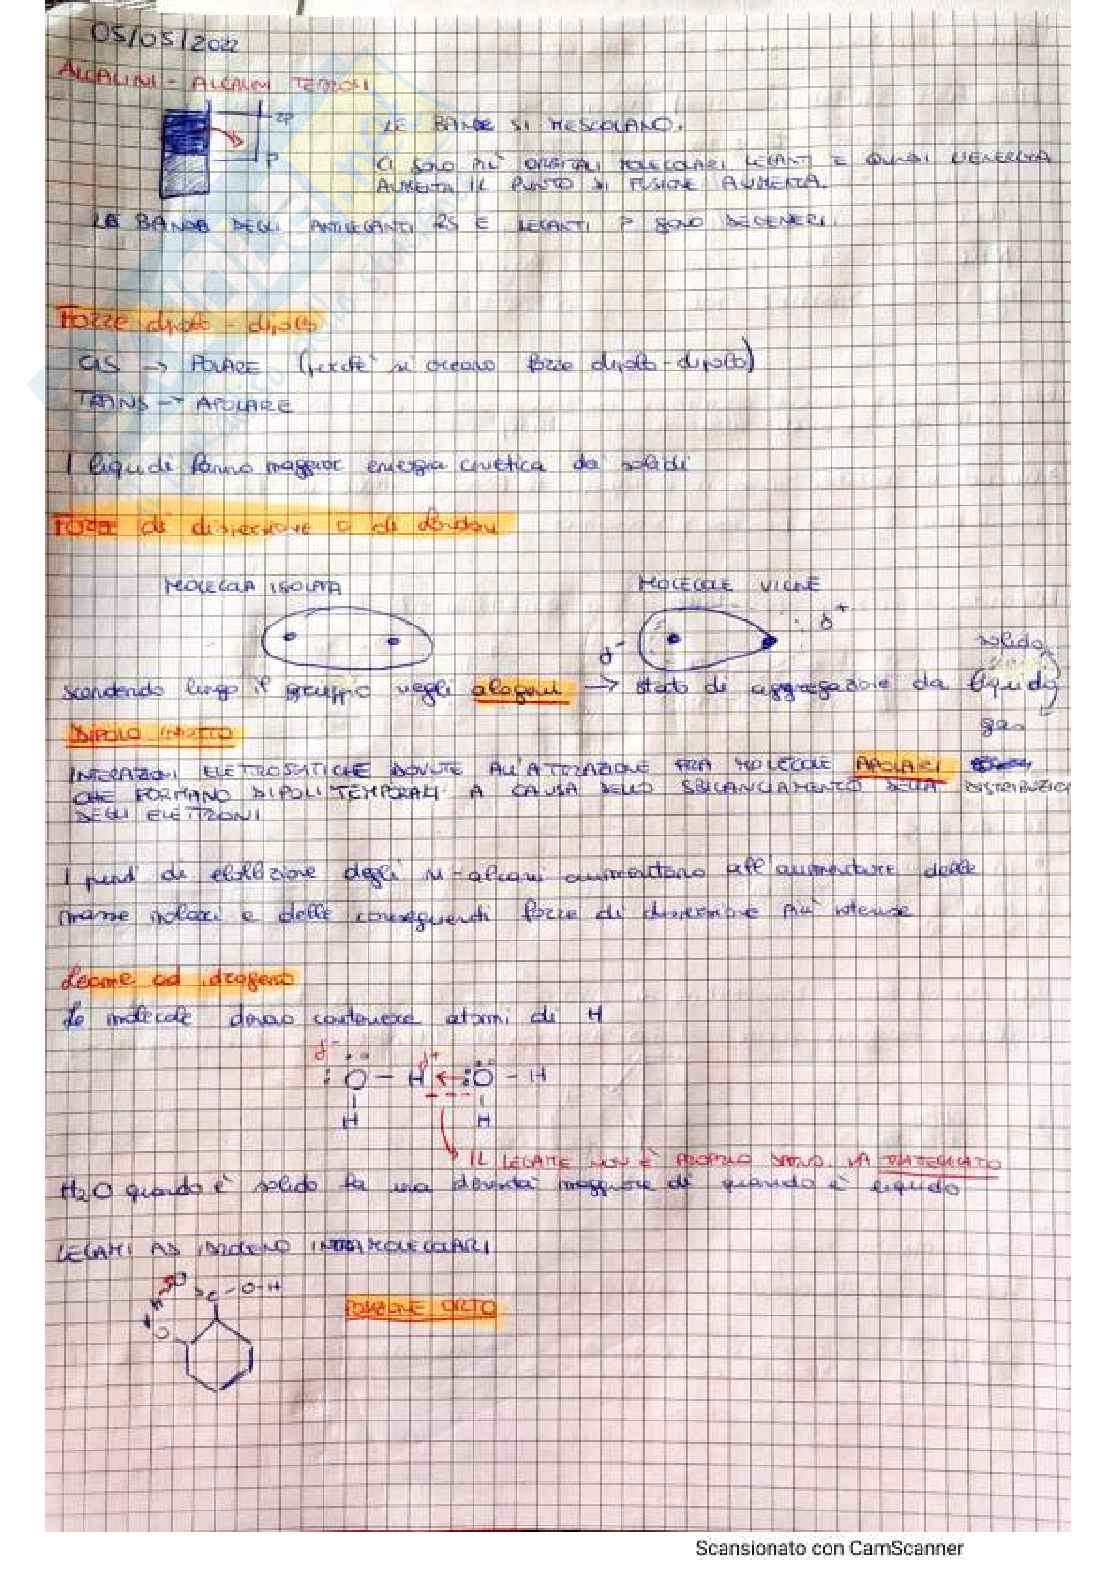 05/05/2022
ALCALINI - ALCALINI TERROSI
2P
LE BANDE SI MESCOLANO.
P
CI SONO PIÙ ORBITALI MOLECOLARI LEGANTI E QUINDI L'ENERGIA
AUMENTA IL PUNTO DI FUSIONE AUMENTA.
LE BANDE DEGLI ANTILEGANTI 2S E LEGANTI P SONO DEGENERI.
Forze dipolo - dipolo
CIS → POLARE (perché si creano forze dipolo-dipolo)
TRANS → APOLARE
I liquidi hanno maggior energia cinetica dei solidi
Forze di dispersione o di London
MOLECOLA ISOLATA MOLECOLE VICINE
δ+
δ-
solido
scendendo lungo il gruppo negli alogeni → stato di aggregazione da liquido
gas
DIPOLO INDOTTO
INTERAZIONI ELETTROSTATICHE DOVUTE ALL'ATTRAZIONE FRA MOLECOLE APOLARI
CHE FORMANO DIPOLI TEMPORALI A CAUSA DELLO SBILANCIAMENTO DELLA DISTRIBUZION
DEGLI ELETTRONI
I punti di ebollizione degli n-alcani aumentano all'aumentare delle
masse molari e delle conseguenti forze di dispersione più intense
Legame ad idrogeno
Le molecole devono contenere atomi di H
δ- δ+
O - H O - H
H H
IL LEGAME NON È PROPRIO DATIVO, VA TRATTEGGIATO
H2O quando è solido ha una densità maggiore di quando è liquido
LEGAMI AD IDROGENO INTRAMOLECOLARI
O C - O-H
H
O
POSIZIONE ORTO
Scansionato con CamScanner